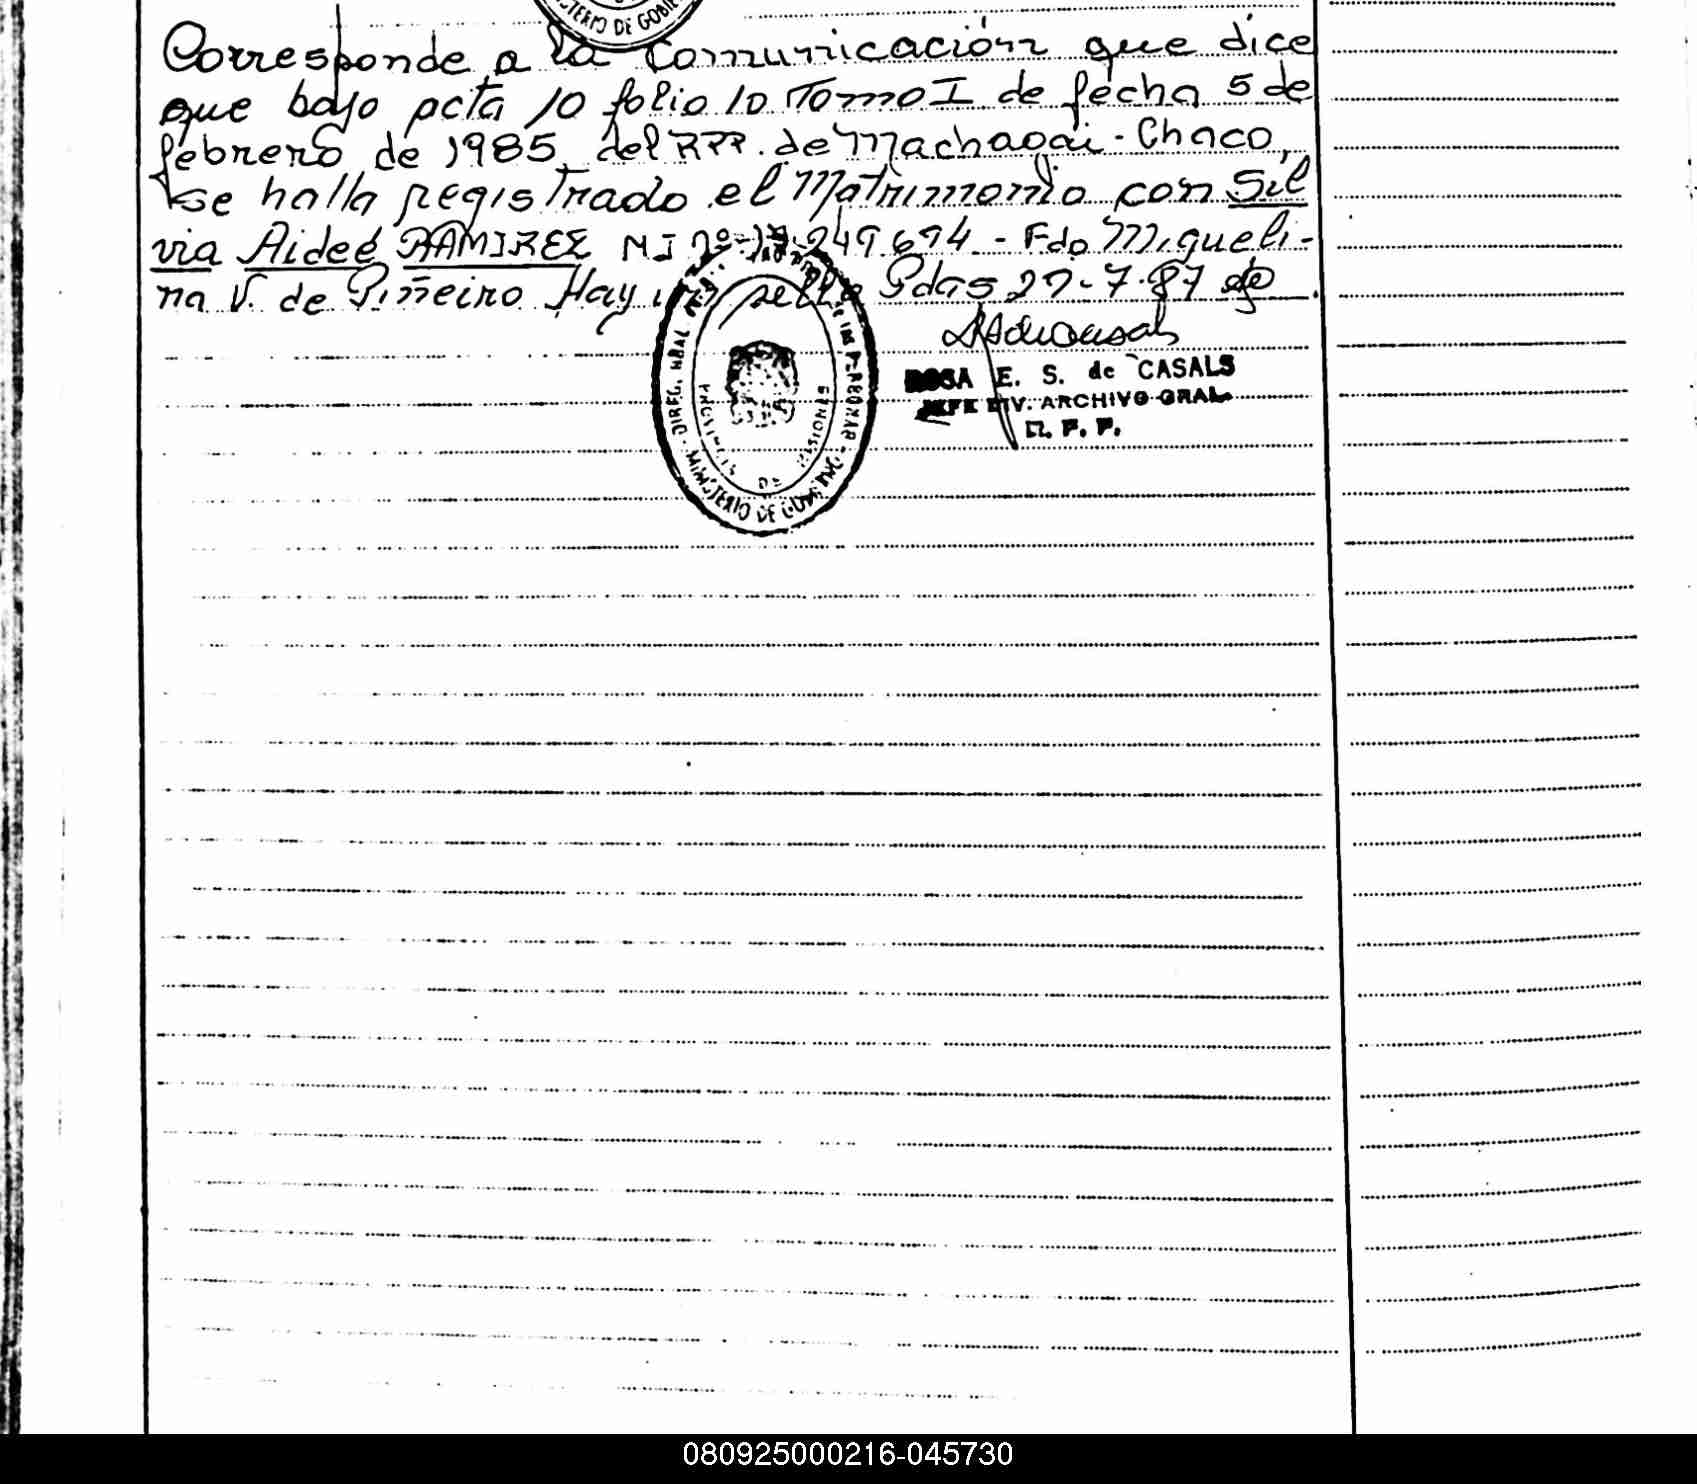 MINISTERIO DE GOBIE
Corresponde a la Comunicación que dice
que bajo acta 10 folio 10 Tomo I de fecha 5 de
febrero de 1985, del RPP. de Machagai - Chaco,
se halla registrado el Matrimonio con Sil
via Aideé RAMIREZ MI nº 17.249.694 - Fdo Migueli-
na V. de Piñeiro Hay un sello Pdas 27-7-87
DIREC. GRAL DE LAS PERSONAS - MINISTERIO DE GOBIERNO
PROVINCIA DE MISIONES
ROSA E. S. de CASALS
JEFE DIV. ARCHIVO GRAL.
R. P. P.
080925000216-045730